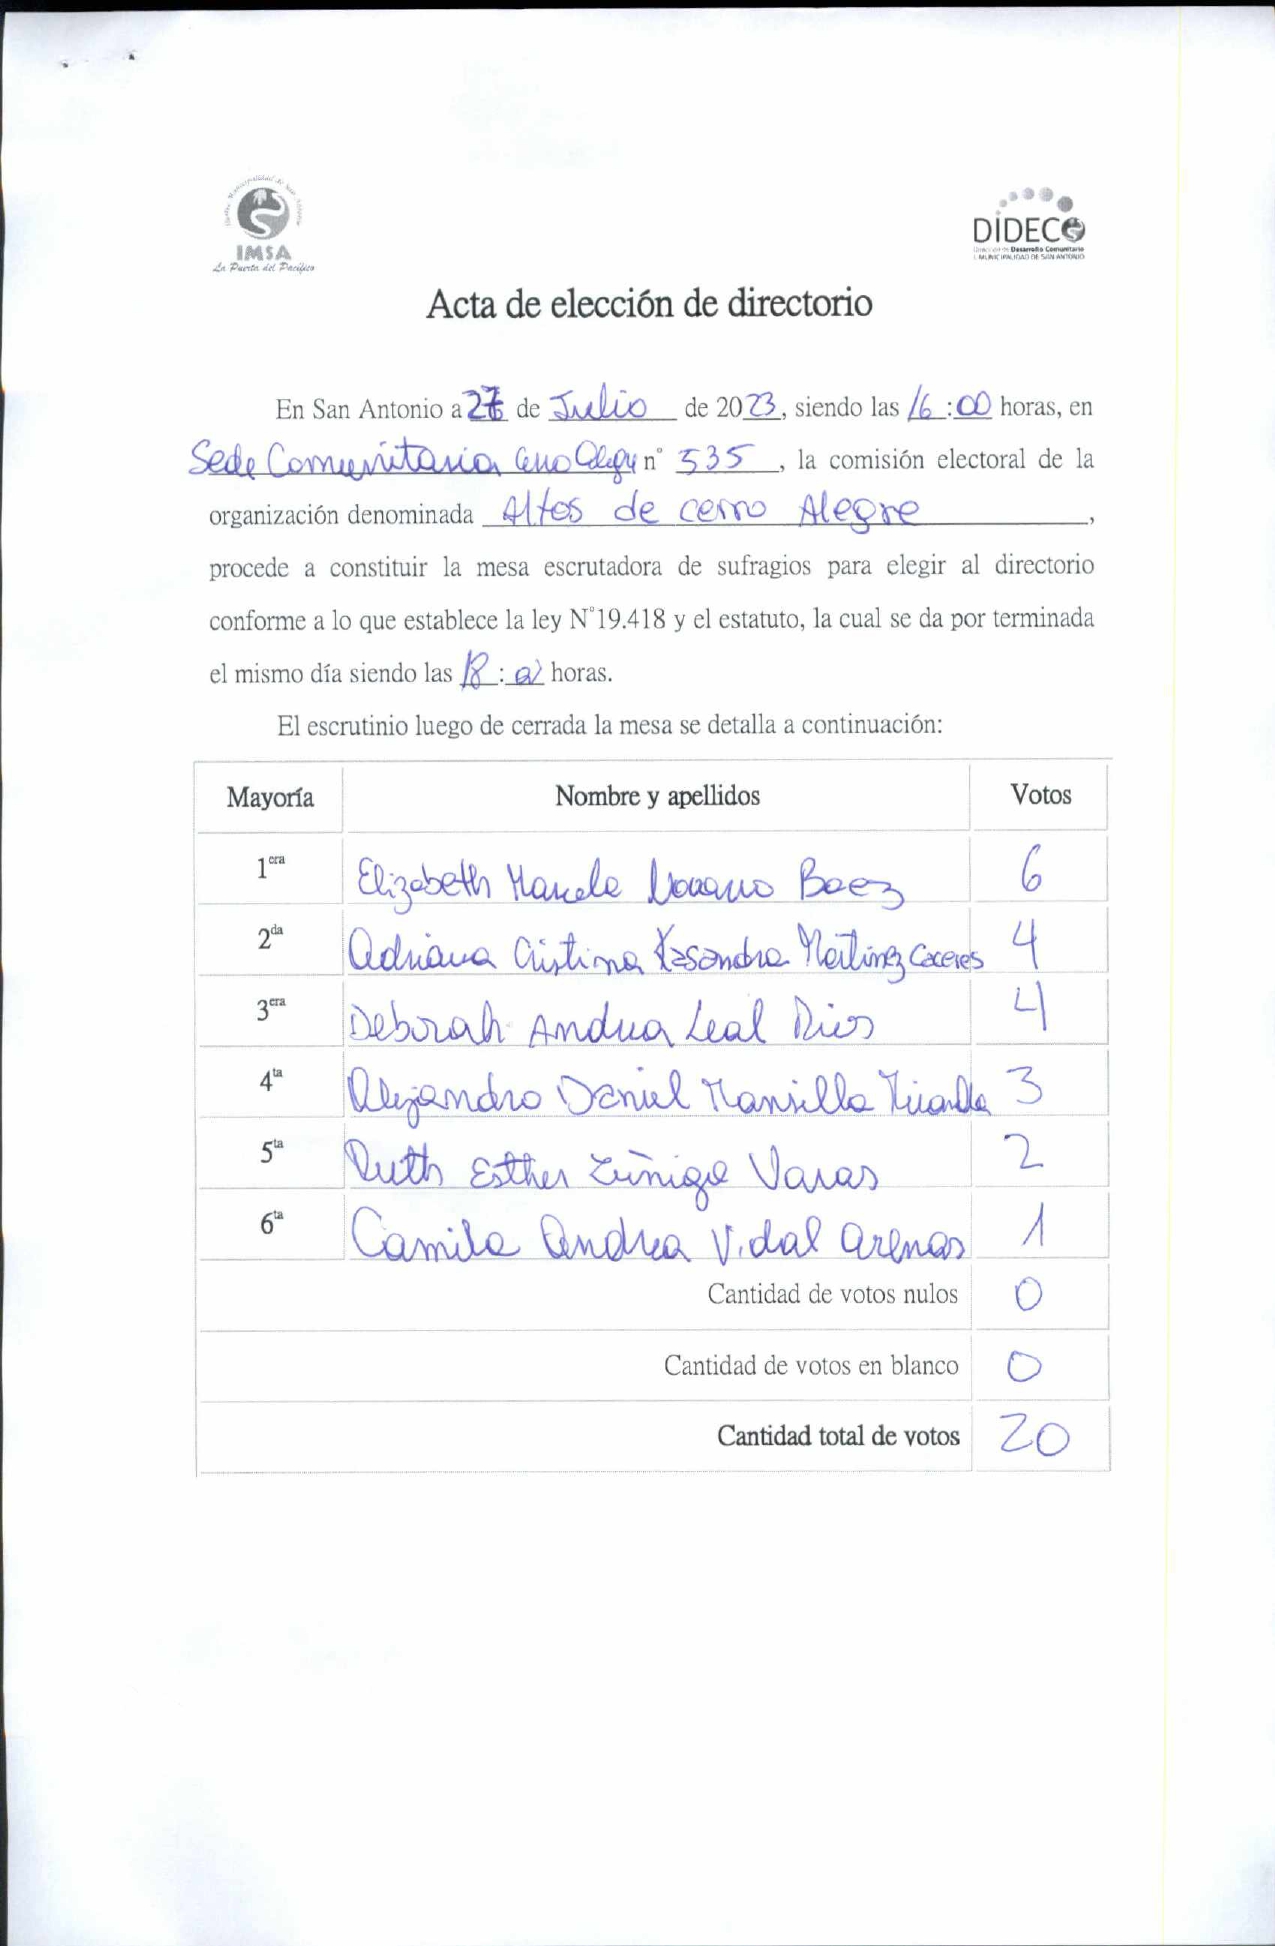 Ilustre Municipalidad de San Antonio
IMSA
La Puerta del Pacífico
DIDECO
Dirección de Desarrollo Comunitario
I. MUNICIPALIDAD DE SAN ANTONIO
Acta de elección de directorio
En San Antonio a de Julio de 2023, siendo las 16:00 horas, en
Sede Comunitaria Cerro Alegre n° 535, la comisión electoral de la
organización denominada Altos de cerro Alegre,
procede a constituir la mesa escrutadora de sufragios para elegir al directorio
conforme a lo que establece la ley N°19.418 y el estatuto, la cual se da por terminada
el mismo día siendo las 18: horas.
El escrutinio luego de cerrada la mesa se detalla a continuación:
Mayoría Nombre y apellidos Votos
1era Elizabeth Baez 6
2da Adriana Cristina Kasandra Martinez Caceres 4
3era Deborah Andrea Leal Rios 4
4ta Alejandro Daniel Mansilla Miranda 3
5ta Ruth Esther Zúñiga Varas 2
6ta Camila Andrea Vidal Arenas 1
Cantidad de votos nulos 0
Cantidad de votos en blanco 0
Cantidad total de votos 20